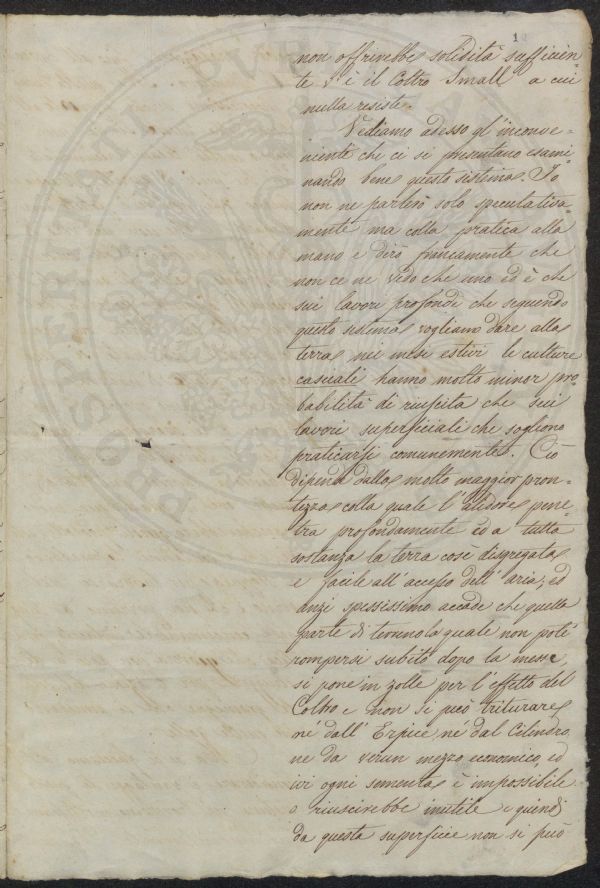 12
non offrirebbe solidità sufficien-
te v'è il Coltro Small a cui
nulla resiste.
Vediamo adesso gl'inconve-
nienti che ci si presentano esami-
nando bene questo sistema. Io
non ne parlerò solo speculativa-
mente ma colla pratica alla
mano e dirò francamente che
non ce ne vedo che uno ed è che
sui lavori profondi che seguendo
questo sistema vogliamo dare alla
terra nei mesi estivi le culture
casuali hanno molto minor pro-
babilità di riuscita che sui
lavori superficiali che sogliono
praticarsi comunemente. Ciò
dipende dalla molto maggior pron-
tezza colla quale l'alidore pene-
tra profondamente ed a tutta
sostanza la terra cose disgregata
e facile all'accesso dell'aria; ed
anzi spessissimo accade che quella
parte di terreno la quale non potè
rompersi subito dopo la messe,
si pone in zolle per l'effetto del
Coltro e non si può triturare
nè dall'Erpice nè dal Cilindro
ne da verun mezzo economico, ed
ivi ogni sementa è impossibile
o riuscirebbe inutile e quindi
da questa superficie non si può
PROSPERITAS PVBLICA